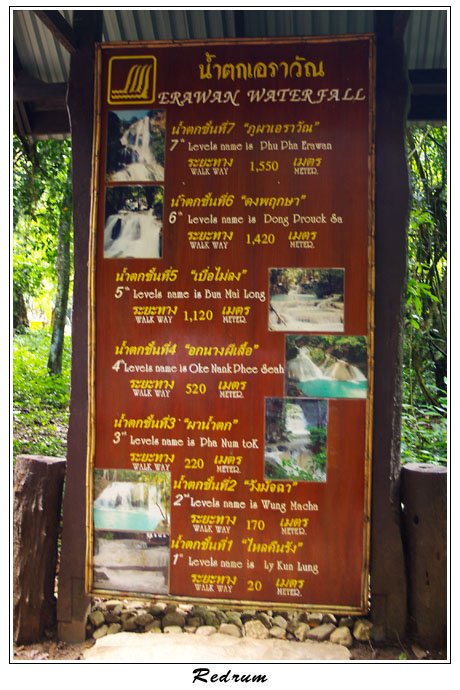 น้ำตกเอราวัณ
ERAWAN WATERFALL
น้ำตกชั้นที่7 "ภูผาเอราวัณ"
7th Levels name is Phu Pha Erawan
ระยะทาง 1,550 เมตร
WALK WAY METER.
น้ำตกชั้นที่6 "ดงพฤกษา"
6th Levels name is Dong Prouck Sa
ระยะทาง 1,420 เมตร
WALK WAY METER.
น้ำตกชั้นที่5 "เบื่อไม่ลง"
5th Levels name is Bua Mai Long
ระยะทาง 1,120 เมตร
WALK WAY METER.
น้ำตกชั้นที่4 "อกนางผีเสื้อ"
4th Levels name is Oke Nank Phee Seah
ระยะทาง 520 เมตร
WALK WAY METER.
น้ำตกชั้นที่3 "ผาน้ำตก"
3rd Levels name is Pha Num toK
ระยะทาง 220 เมตร
WALK WAY METER.
น้ำตกชั้นที่2 "วังมัจฉา"
2nd Levels name is Wung Macha
ระยะทาง 170 เมตร
WALK WAY METER.
น้ำตกชั้นที่1 "ไหลคืนรัง"
1st Levels name is Ly Kun Lung
ระยะทาง 20 เมตร
WALK WAY METER.
Redrum